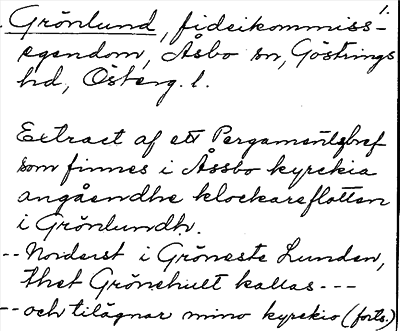 1.
Grönlund, fideikommiss-
egendom, Åsbo sn, Göstrings
hd, Österg. l.
Extract af ett Pergamentsbref
som finnes i Åssbo kyrckia
angåendhe klockareflotten
i Grönlundh.
-- Norderst i Gröneste Lunden,
thet Grönehult kallas ---
-- och tilägnar mino kyrckio (forts.)